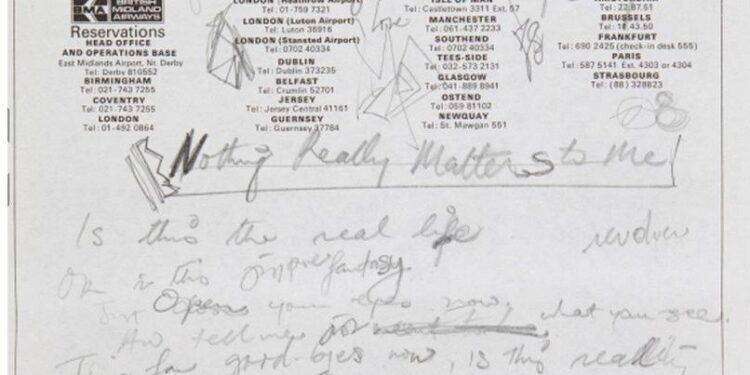 BMA BRITISH MIDLAND AIRWAYS
Reservations
HEAD OFFICE
AND OPERATIONS BASE
East Midlands Airport, Nr. Derby
Tel: Derby 810552
BIRMINGHAM
Tel: 021-743 7255
COVENTRY
Tel: 021-743 7255
LONDON
Tel: 01-492 0864
LONDON (Heathrow Airport)
Tel: 01-759 7321
LONDON (Luton Airport)
Tel: Luton 36916
LONDON (Stansted Airport)
Tel: 0702 40334
DUBLIN
Tel: Dublin 373235
BELFAST
Tel: Crumlin 52701
JERSEY
Tel: Jersey Central 41161
GUERNSEY
Tel: Guernsey 37784
Love
ISLE OF MAN
Tel: Castletown 3311 Ext. 57
MANCHESTER
Tel: 061-437 2233
SOUTHEND
Tel: 0702 40334
TEES-SIDE
Tel: 032-573 2131
GLASGOW
Tel: 041-889 8941
OSTEND
Tel: 059 81102
NEWQUAY
Tel: St. Mawgan 551
BRUSSELS
FRANKFURT
Tel: 690 2425 (check-in desk 555)
PARIS
Tel: 587 5141 Ext. 4303 or 4304
STRASBOURG
Tel: (88) 328823
Nothing Really Matters to Me
Is this the real life
or is this fantasy
your eyes now, what you see.
And tell me
good-byes now, is this reality